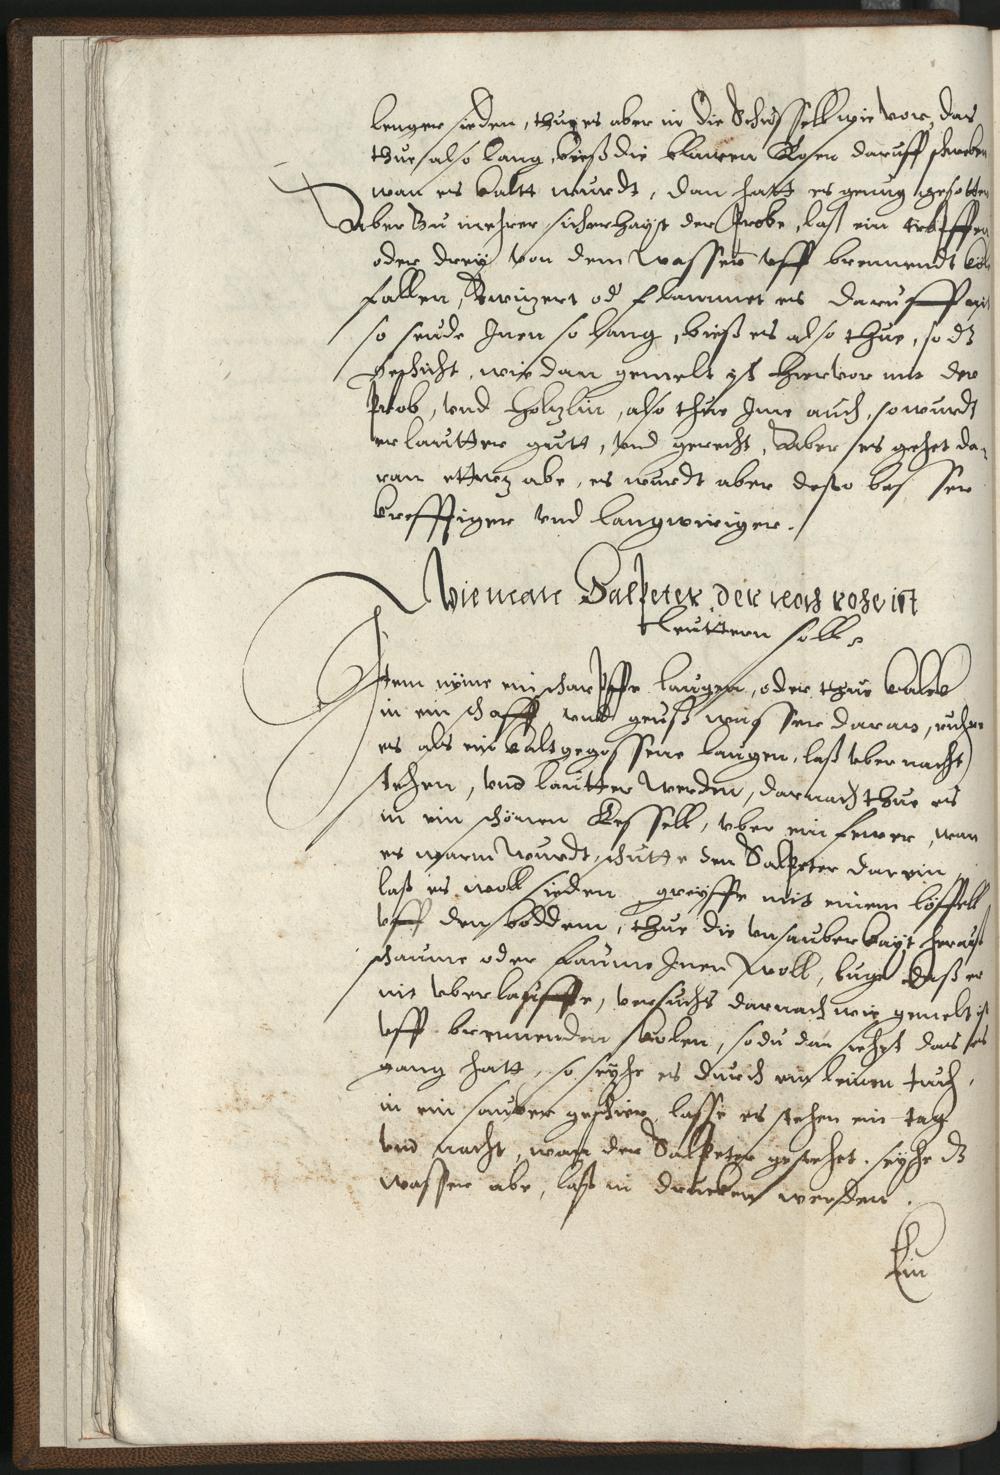 lenger sieden, thue es aber in die Schüssell wie vor, das
thue also lang, bieß die klaren Rosen daruff schweben
wan es kaltt wurdt, dan hatt es genug gesotten
Aber zu mehrer sicherhayt der Prob, laß ein tropffen
oder drey von dem wasser vff brennendt koln
fallen, od flammet es daruff
so seude Jnen so lang, bieß es also thue, so dz
geschicht, wie dan gemelt ist hiervor mit der
Prob, vnd höltzlin, also thue Jme auch, so wurdt
er lautter gutt, vnd gerecht, Aber es gehet da-
ran ettwz abe, es wurdt aber desto besser
krefftiger vnd langwiriger.
Wie man Salpeter der noch rohe ist
leuttern soll.
Jtem nyme ein scharpffe laugen, oder thue kalck
in ein schaff, vnd geuß wasser daran, ruhre
es als ein kalt gegossene laugen, laß vber nacht
stehen, vnd lautter werden, darnach thue es
in ein schönen Kessell, vber ein fewer, wan
es warm wurdt, schutte den Salpeter darein,
laß es woll sieden, greyffe mit einem löffell
vff den boddem, thue die vnsauberkayt herauß
schaume oder faume Jnen woll, luge daß er
nit vberlauffe, versuchs darnach wie gemelt ist
vff brennenden kolen, so du dan siehst das es
gang hatt, so seyhe es durch ein leinen tuch,
in ein sauber geschier, lasse es stehen ein tag
vnd nacht, wan der Salpeter gestehet, seyhe dz
wasser abe, laß in drucken werden.
Ein